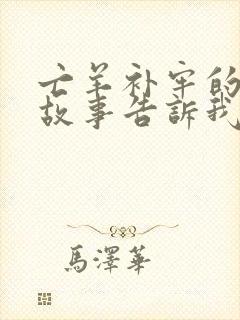 亡羊补牢的
故事告訴我
馬澤華